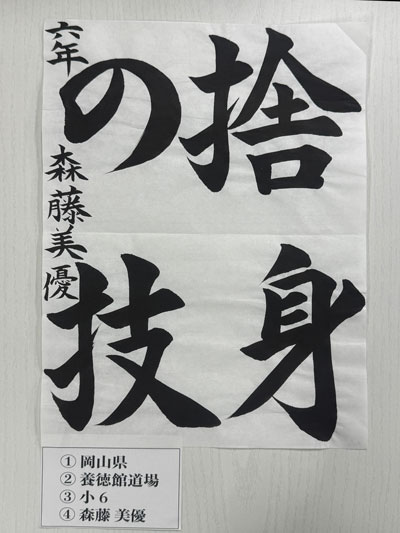 捨身
の技
六年 森藤美優
① 岡山県
② 養徳館道場
③ 小6
④ 森藤 美優